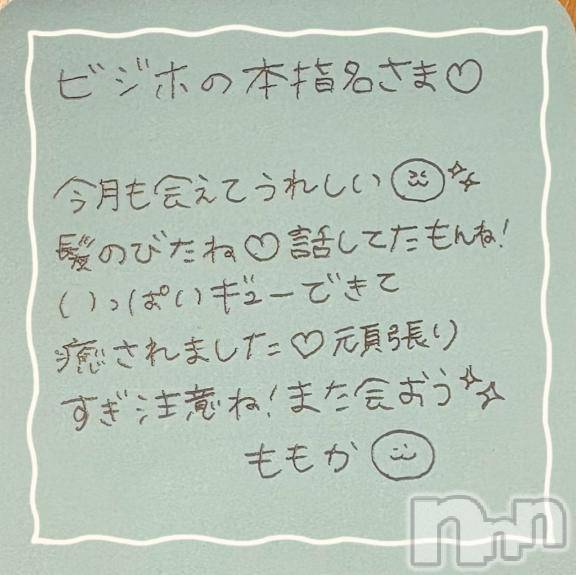 ビジホの本指名さま♡
今月も会えてうれしい
髪のびたね♡話してたもんね!
いっぱいギューできて
癒されました♡頑張り
すぎ注意ね!また会おう
ももか
nnn